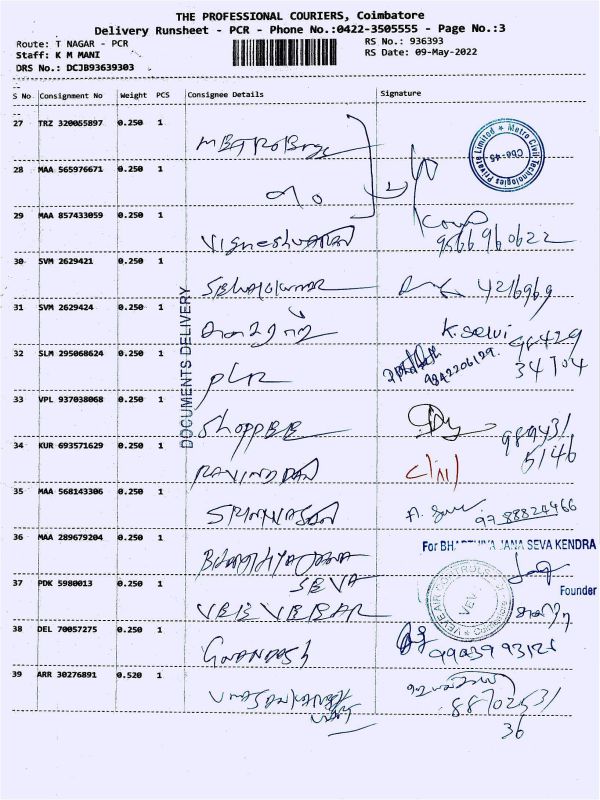 THE PROFESSIONAL COURIERS, Coimbatore
Delivery Runsheet - PCR - Phone No.:0422-3505555 - Page No.:3
Route: T NAGAR - PCR
RS No.: 936393
Staff: K M MANI
RS Date: 09-May-2022
DRS No.: DCJB93639303
S No Consignment No Weight PCS Consignee Details Signature
27 TRZ 320055897 0.250 1
Metro Civil Technologies Private Limited
Cbe-45
28 MAA 565976671 0.250 1
29 MAA 857433059 0.250 1
Vigneshwaran 9566960622
30 SVM 2629421 0.250 1
Selvakumar 4216969
31 SVM 2629424 0.250 1
K. Selvi 98429
34704
32 SLM 295068624 0.250 1
9842206129
DOCUMENTS DELIVERY
33 VPL 937038068 0.250 1
Shoppee
989431
5146
34 KUR 693571629 0.250 1
Ravindran
35 MAA 568143306 0.250 1
Srinivasan 97 88824466
36 MAA 289679204 0.250 1
For BHARTHIYA JANA SEVA KENDRA
Bharthiya Jana
Seva
Founder
37 PDK 5980013 0.250 1
VEE VEEAR
VEV
38 DEL 70057275 0.250 1
99039 93121
39 ARR 30276891 0.520 1
88702531
36